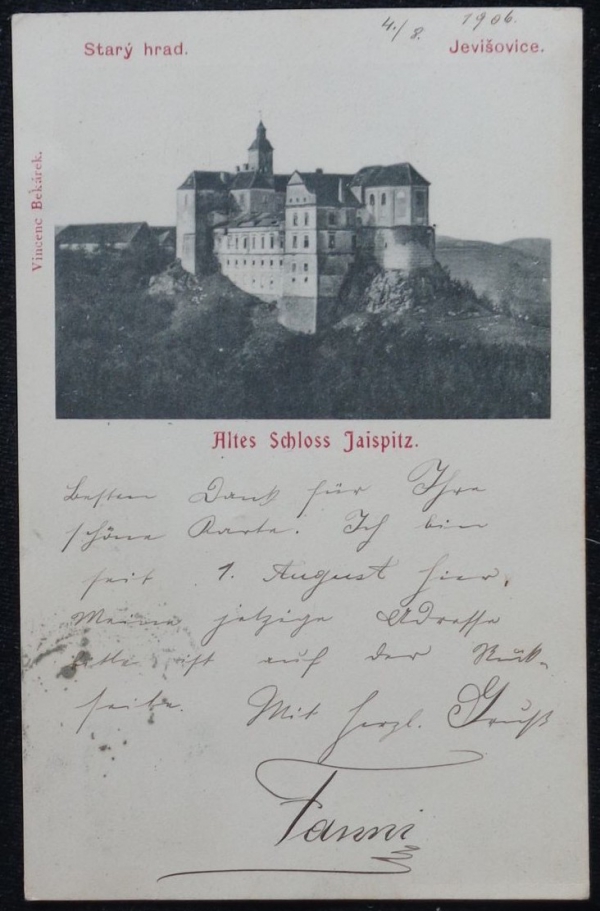 4./8. 1906.
Starý hrad. Jevišovice.
Vincenc Bekárek.
Altes Schloss Jaispitz.
Besten Dank für Ihre
schöne Karte. Ich bin
seit 1. August hier.
Meine jetzige Adresse
ist auf der Rück-
seite. Mit herzl. Gruß
Fanni